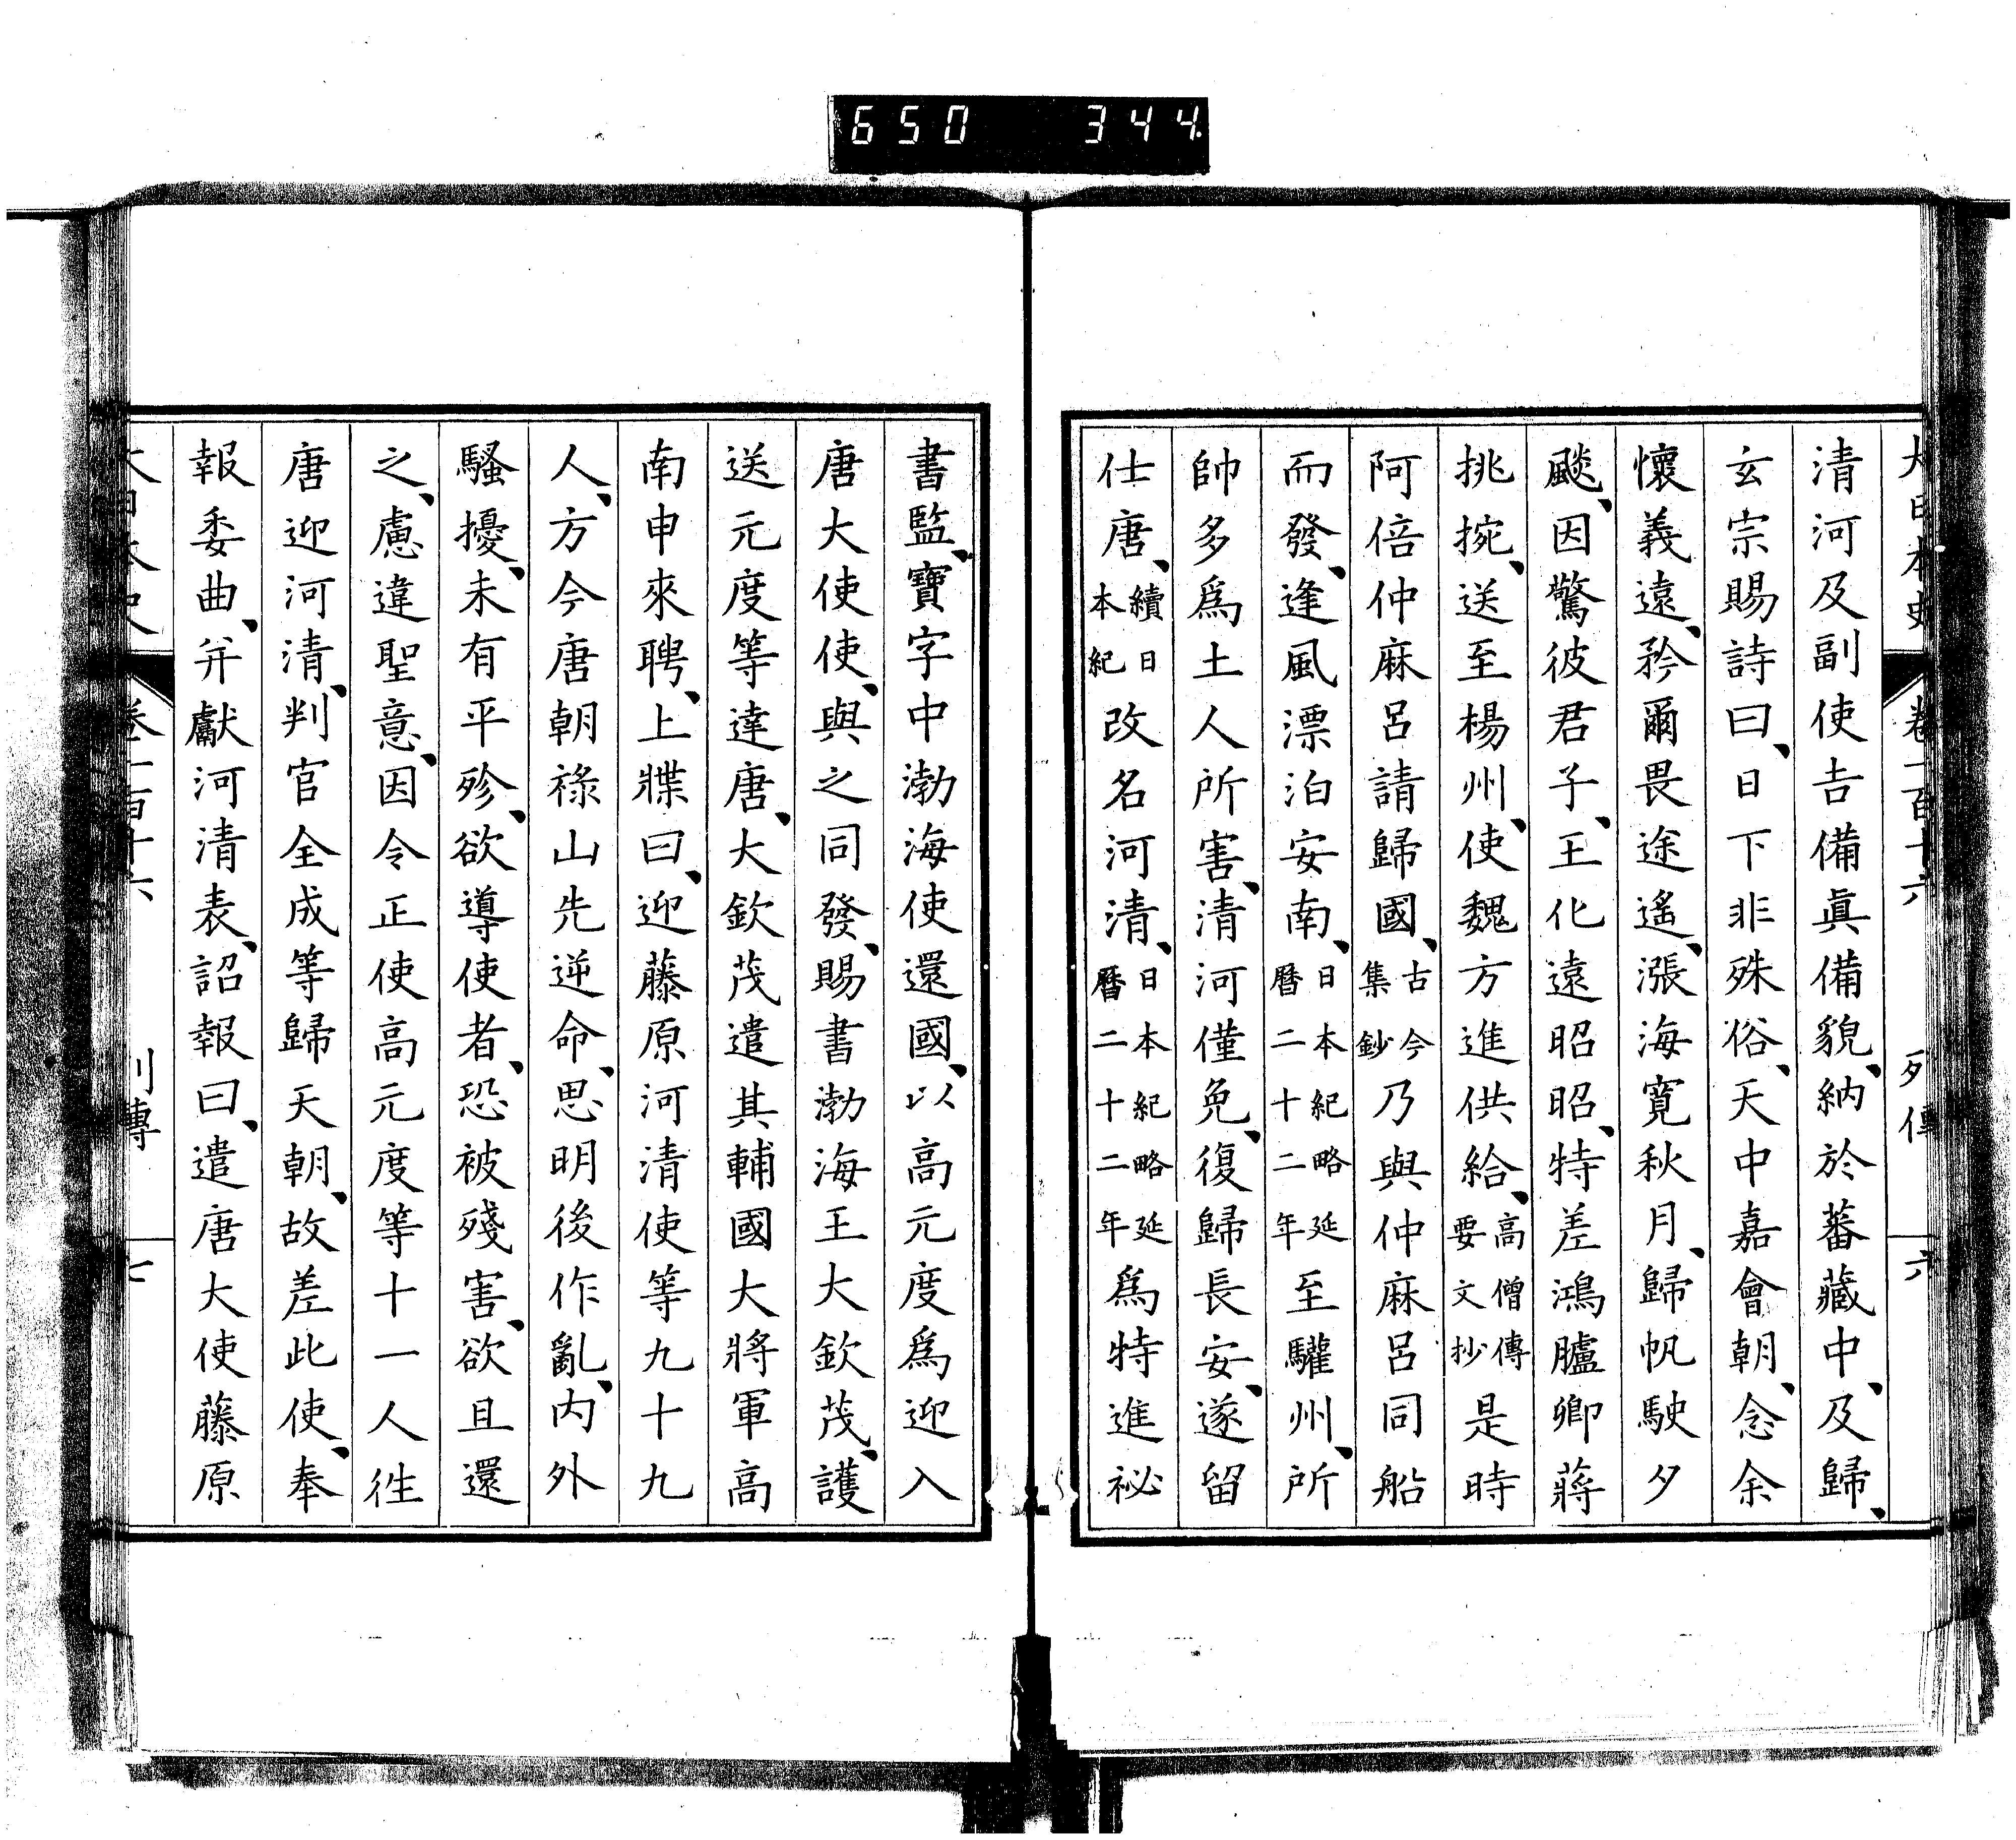 650 344
大日本史 卷一百十六 列傳 六
清河及副使吉備眞備貌、納於蕃藏中、及歸、
玄宗賜詩曰、日下非殊俗、天中嘉會朝、念余
懷義遠、矜爾畏途遙、漲海寬秋月、歸帆駛夕
飈、因驚彼君子、王化遠昭昭、特差鴻臚卿蔣
挑捥、送至楊州、使魏方進供給、高僧傳要文抄是時
阿倍仲麻呂請歸國、古今集鈔乃與仲麻呂同船
而發、逢風漂泊安南、日本紀略延曆二十二年至驩州、所
帥多爲土人所害、清河僅免、復歸長安、遂留
仕唐、續日本紀改名河清、日本紀略延曆二十二年爲特進祕
書監、寶字中渤海使還國、以高元度爲迎入
唐大使使、與之同發、賜書渤海王大欽茂、護
送元度等達唐、大欽茂遣其輔國大將軍高
南申來聘、上牒曰、迎藤原河清使等九十九
人、方今唐朝祿山先逆命、思明後作亂、内外
騷擾、未有平殄、欲導使者、恐被殘害、欲且還
之、慮違聖意、因令正使高元度等十一人徃
唐迎河清、判官全成等歸天朝、故差此使、奉
報委曲、幷獻河清表、詔報曰、遣唐大使藤原
大日本史 卷一百十六 列傳 七